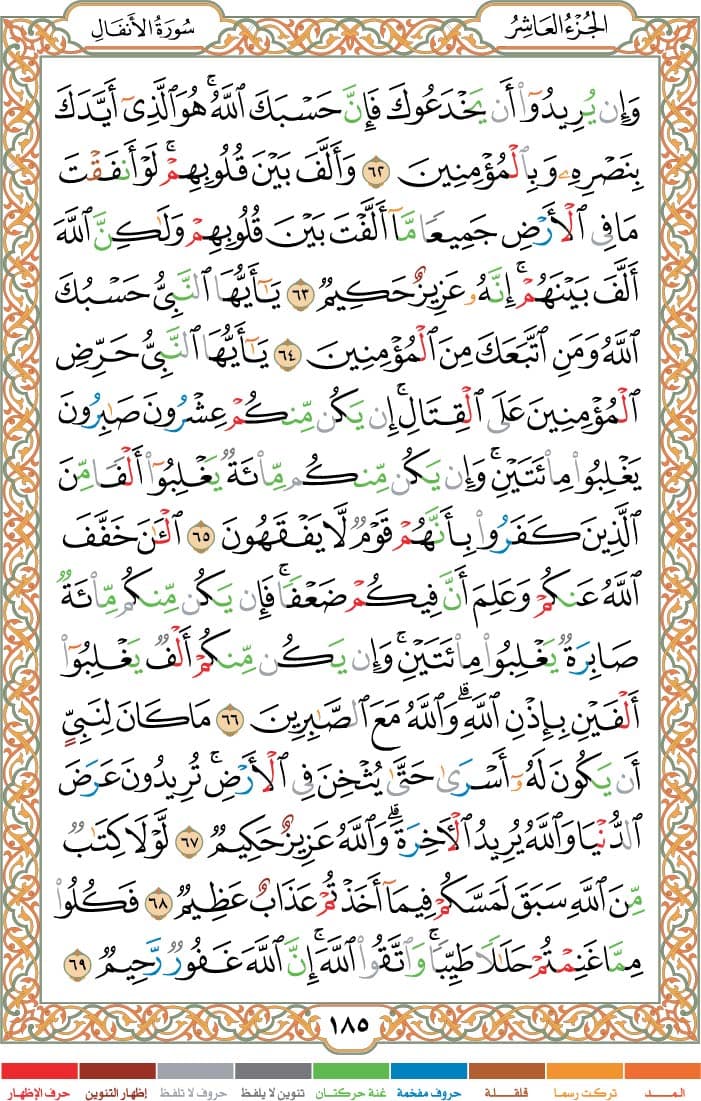 الجزء العاشر
سورة الأنفال
وَإِن يُرِيدُوٓا۟ أَن يَخْدَعُوكَ فَإِنَّ حَسْبَكَ ٱللَّهُ ۚ هُوَ ٱلَّذِىٓ أَيَّدَكَ
بِنَصْرِهِۦ وَبِٱلْمُؤْمِنِينَ ٦٢ وَأَلَّفَ بَيْنَ قُلُوبِهِمْ ۚ لَوْ أَنفَقْتَ
مَا فِى ٱلْأَرْضِ جَمِيعًا مَّآ أَلَّفْتَ بَيْنَ قُلُوبِهِمْ وَلَـٰكِنَّ ٱللَّهَ
أَلَّفَ بَيْنَهُمْ ۚ إِنَّهُۥ عَزِيزٌ حَكِيمٌ ٦٣ يَـٰٓأَيُّهَا ٱلنَّبِىُّ حَسْبُكَ
ٱللَّهُ وَمَنِ ٱتَّبَعَكَ مِنَ ٱلْمُؤْمِنِينَ ٦٤ يَـٰٓأَيُّهَا ٱلنَّبِىُّ حَرِّضِ
ٱلْمُؤْمِنِينَ عَلَى ٱلْقِتَالِ ۚ إِن يَكُن مِّنكُمْ عِشْرُونَ صَـٰبِرُونَ
يَغْلِبُوا۟ مِا۟ئَتَيْنِ ۚ وَإِن يَكُن مِّنكُم مِّا۟ئَةٌ يَغْلِبُوٓا۟ أَلْفًا مِّنَ
ٱلَّذِينَ كَفَرُوا۟ بِأَنَّهُمْ قَوْمٌ لَّا يَفْقَهُونَ ٦٥ ٱلْـَٔـٰنَ خَفَّفَ
ٱللَّهُ عَنكُمْ وَعَلِمَ أَنَّ فِيكُمْ ضَعْفًا ۚ فَإِن يَكُن مِّنكُم مِّا۟ئَةٌ
صَابِرَةٌ يَغْلِبُوا۟ مِا۟ئَتَيْنِ ۚ وَإِن يَكُن مِّنكُمْ أَلْفٌ يَغْلِبُوٓا۟
أَلْفَيْنِ بِإِذْنِ ٱللَّهِ ۗ وَٱللَّهُ مَعَ ٱلصَّـٰبِرِينَ ٦٦ مَا كَانَ لِنَبِىٍّ
أَن يَكُونَ لَهُۥٓ أَسْرَىٰ حَتَّىٰ يُثْخِنَ فِى ٱلْأَرْضِ ۚ تُرِيدُونَ عَرَضَ
ٱلدُّنْيَا وَٱللَّهُ يُرِيدُ ٱلْـَٔاخِرَةَ ۗ وَٱللَّهُ عَزِيزٌ حَكِيمٌ ٦٧ لَّوْلَا كِتَـٰبٌ
مِّنَ ٱللَّهِ سَبَقَ لَمَسَّكُمْ فِيمَآ أَخَذْتُمْ عَذَابٌ عَظِيمٌ ٦٨ فَكُلُوا۟
مِمَّا غَنِمْتُمْ حَلَـٰلًا طَيِّبًا ۚ وَٱتَّقُوا۟ ٱللَّهَ ۚ إِنَّ ٱللَّهَ غَفُورٌ رَّحِيمٌ ٦٩
١٨٥
المـــد
تركت رسما
قلقـلة
حروف مفخمة
غنة حركتان
تنوين لا يلفظ
حروف لا تلفظ
إظهار التنوين
حرف الإظهار